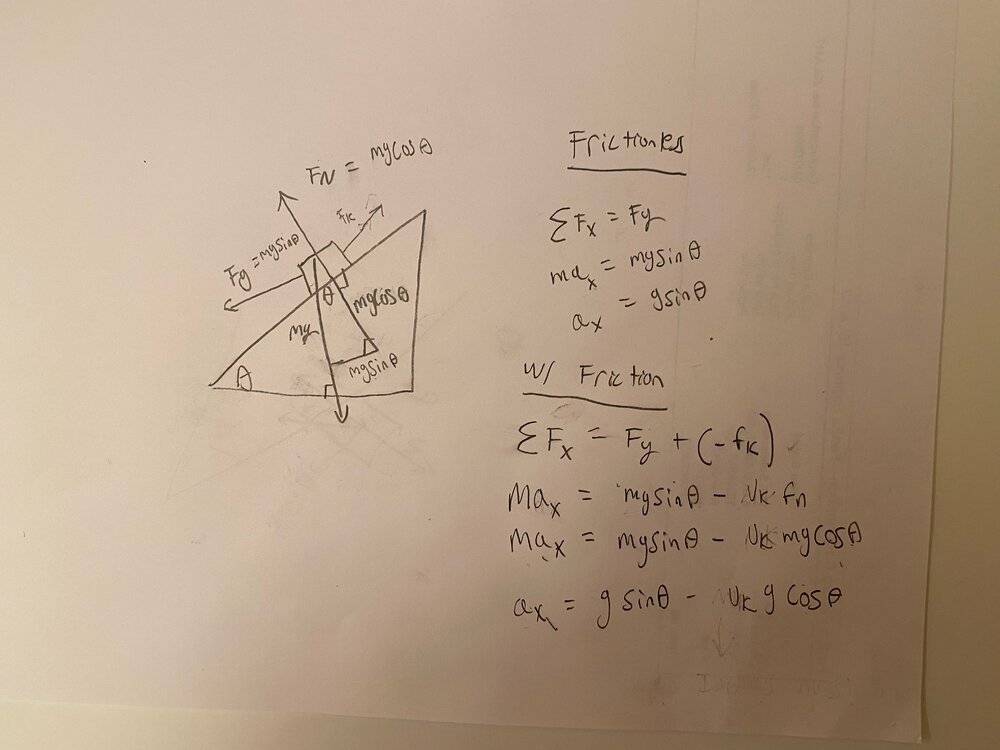 FN = mgcosθ
fk
Fg = mgsinθ
θ
mgcosθ
mg
mgsinθ
θ
Frictionless
ΣFx = Fg
max = mgsinθ
ax = gsinθ
w/ Friction
ΣFx = Fg + (-fk)
max = mgsinθ - Uk fn
max = mgsinθ - Uk mgcosθ
ax = g sinθ - Uk g cosθ